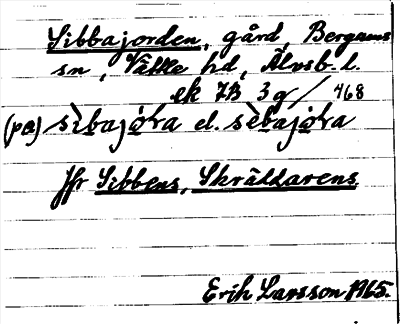 Sibbajorden, gård, Bergums
sn, Vättle hd, Älvsb. l.
ek JB 3g/468
(på) sìbajo̩ɽa el. sèbajo̩ɽa
Jfr Sibbens, Skräddarens.
Erik Larsson 1965.